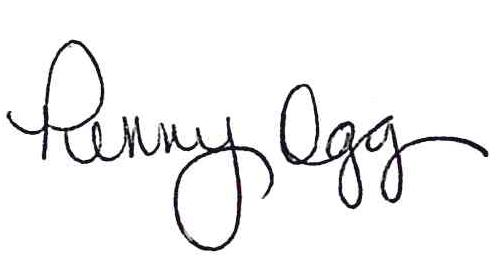 Penny Ogg